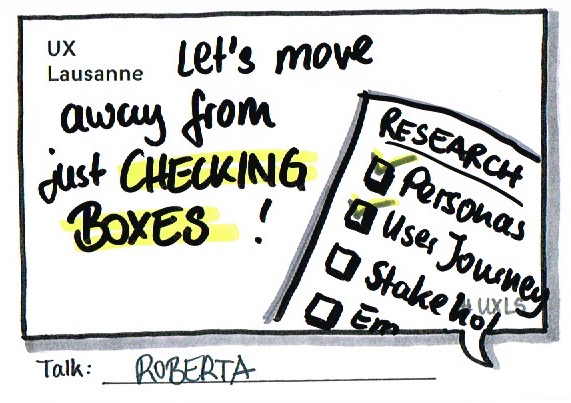 UX
Lausanne
Let's move
away from
just CHECKING
BOXES !
RESEARCH
Personas
User Journey
Stakehol
Em
UXLS
Talk: ROBERTA